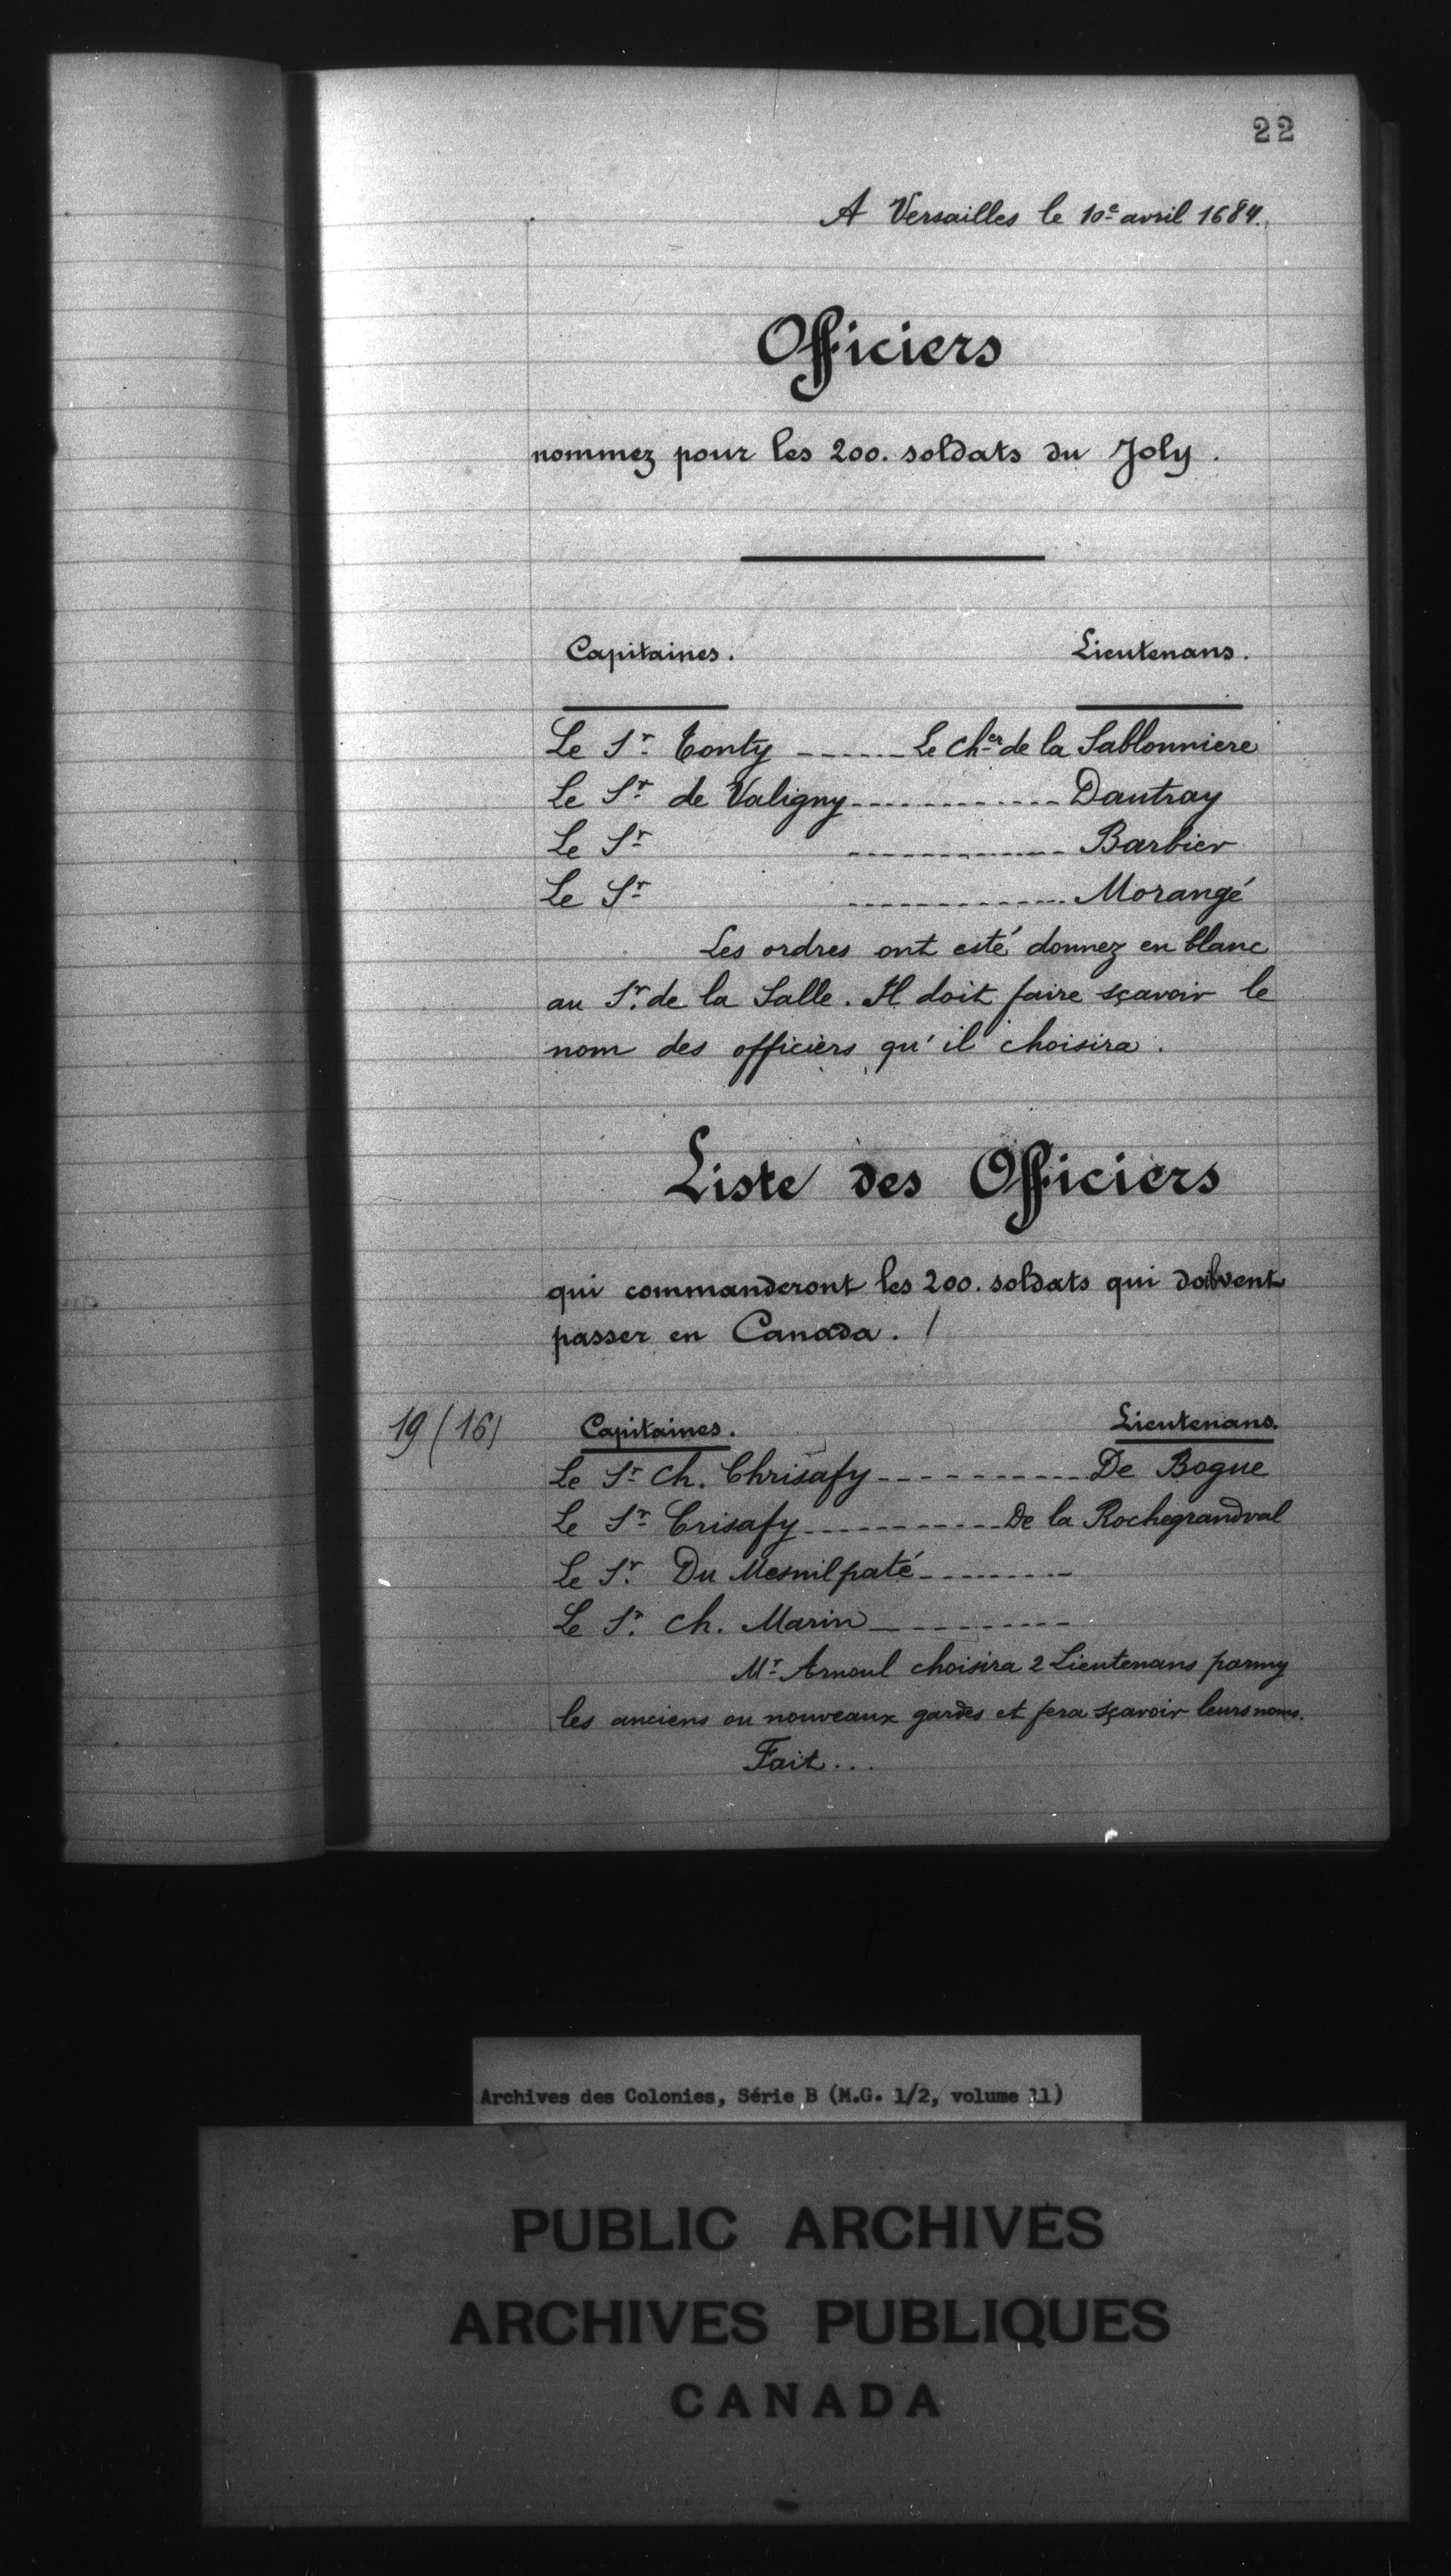 22
A Versailles le 10e avril 1684.
Officiers
nommez pour les 200. soldats du Joly.
Capitaines. Lieutenans.
Le Sr Tonty ------ Le Cher de la Sablonniere
Le Sr de Valigny ------------ Dautray
Le Sr ------------ Barbier
Le Sr ------------ Morangé
Les ordres ont esté donnez en blanc
au Sr. de la Salle. Il doit faire sçavoir le
nom des officiers qu'il choisira.
Liste des Officiers
qui commanderont les 200. soldats qui doivent
passer en Canada. /
19 (16) Capitaines. Lieutenans.
Le Sr Ch. Chrisafy ---------- De Bogue
Le Sr Crisafy ---------- De la Rochegrandval
Le Sr. Du Mesnilpaté ---------
Le Sr. Ch. Marin ----------
Mr Arnoul choisira 2 Lieutenans parmy
les anciens ou nouveaux gardes et fera sçavoir leurs noms.
Fait...
Archives des Colonies, Série B (M.G. 1/2, volume 11)
PUBLIC ARCHIVES
ARCHIVES PUBLIQUES
CANADA